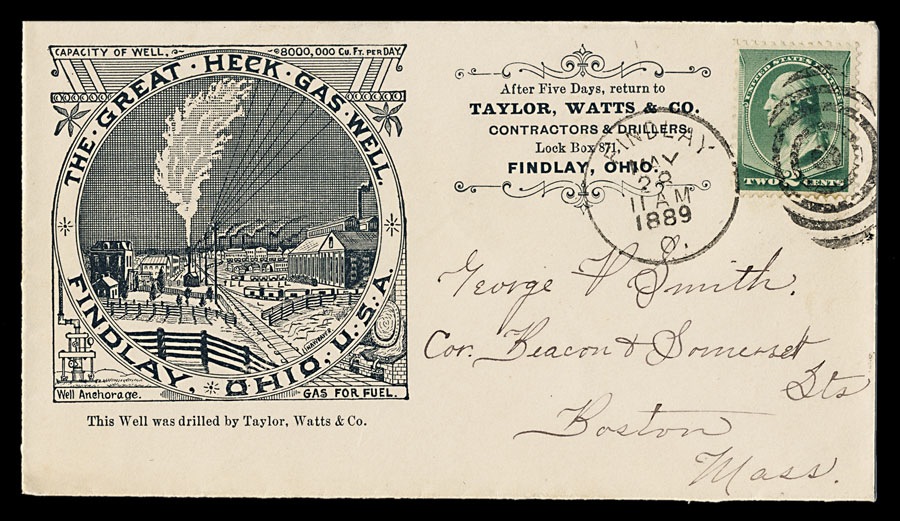 CAPACITY OF WELL. 8000,000 CU. FT. PER DAY.
THE · GREAT · HECK · GAS · WELL.
FINDLAY, OHIO. U.S.A.
Well Anchorage.
GAS FOR FUEL.
This Well was drilled by Taylor, Watts & Co.
After Five Days, return to
TAYLOR, WATTS & CO.
CONTRACTORS & DRILLERS,
Lock Box 871,
FINDLAY, OHIO.
FINDLAY
MAY
28
11 AM
1889
O.
UNITED STATES
TWO 2 CENTS
George V Smith.
Cor. Beacon & Somerset
Sts
Boston
Mass.